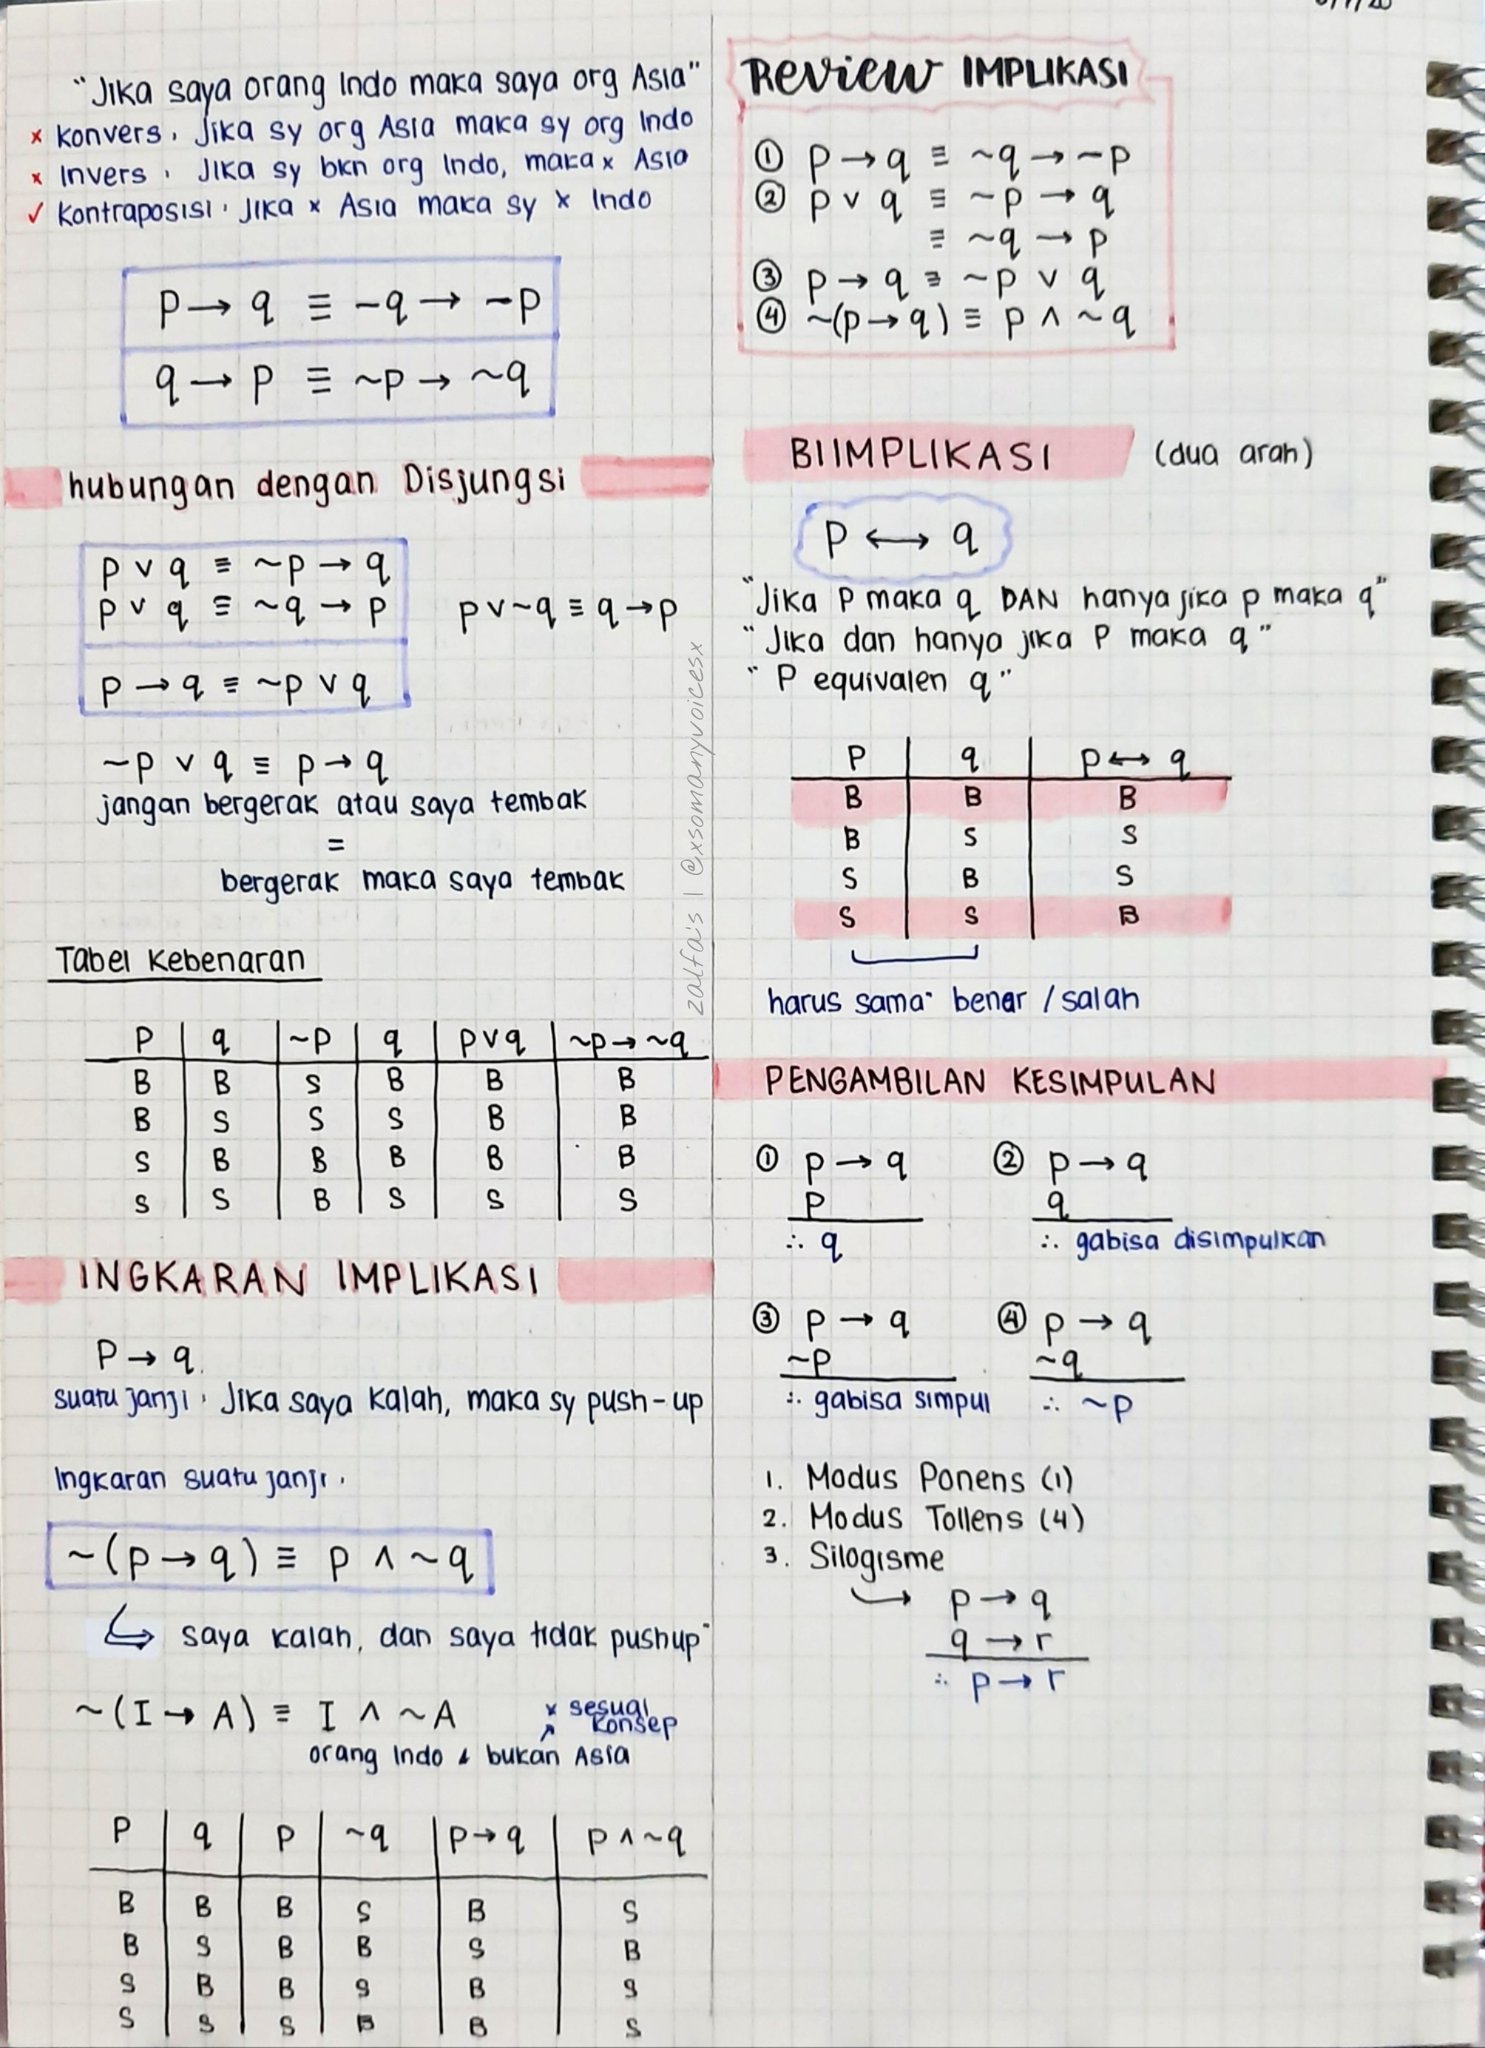 "Jika saya orang Indo maka saya org Asia"
× Konvers. Jika sy org Asia maka sy org Indo
× Invers. Jika sy bkn org Indo, maka × Asia
✓ Kontraposisi. Jika × Asia maka sy × Indo
p → q ≡ ~q → ~p
q → p ≡ ~p → ~q
hubungan dengan Disjungsi
p ∨ q ≡ ~p → q
p ∨ q ≡ ~q → p
p ∨ ~q ≡ q → p
p → q ≡ ~p ∨ q
~p ∨ q ≡ p → q
jangan bergerak atau saya tembak
=
bergerak maka saya tembak
Tabel Kebenaran
p | q | ~p | q | p ∨ q | ~p → ~q
B | B | S | B | B | B
B | S | S | S | B | B
S | B | B | B | B | B
S | S | B | S | S | S
INGKARAN IMPLIKASI
P → q.
suatu janji. Jika saya kalah, maka sy push-up
Ingkaran suatu janji.
~(p → q) ≡ p ∧ ~q
↳ saya kalah, dan saya tidak pushup
~(I → A) ≡ I ∧ ~A
× sesuai
konsep
orang Indo & bukan Asia
P | q | P | ~q | p → q | p ∧ ~q
B | B | B | S | B | S
B | S | B | B | S | B
S | B | B | S | B | S
S | S | S | B | B | S
zalfa's | @xsomanyvoicesx
Review IMPLIKASI
① p → q ≡ ~q → ~p
② p ∨ q ≡ ~p → q
≡ ~q → p
③ p → q ≡ ~p ∨ q
④ ~(p → q) ≡ p ∧ ~q
BIIMPLIKASI (dua arah)
P ↔ q
"Jika P maka q DAN hanya jika p maka q"
"Jika dan hanya jika P maka q"
"P equivalen q"
P | q | p ↔ q
B | B | B
B | S | S
S | B | S
S | S | B
harus sama benar / salah
PENGAMBILAN KESIMPULAN
① p → q
p
∴ q
② p → q
q
∴ gabisa disimpulkan
③ p → q
~p
∴ gabisa simpul
④ p → q
~q
∴ ~p
1. Modus Ponens (1)
2. Modus Tollens (4)
3. Silogisme
→ p → q
q → r
∴ p → r